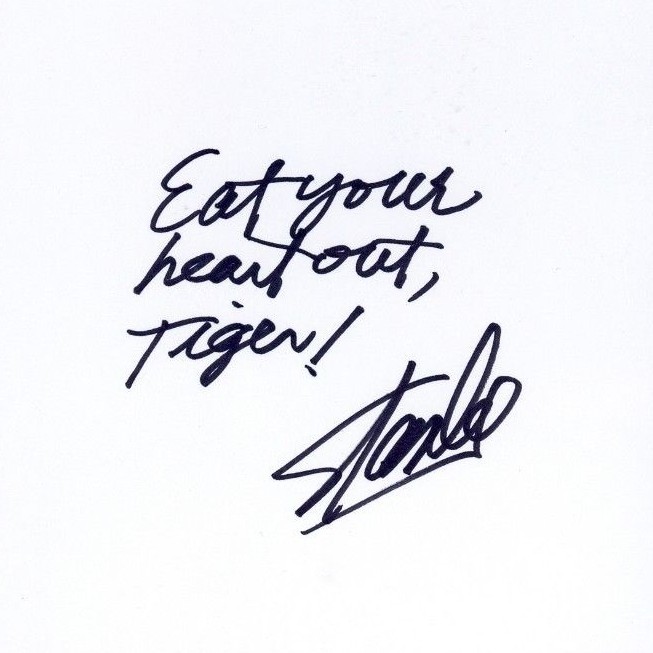 Eat your
heart out,
Tiger!
Stan Lee